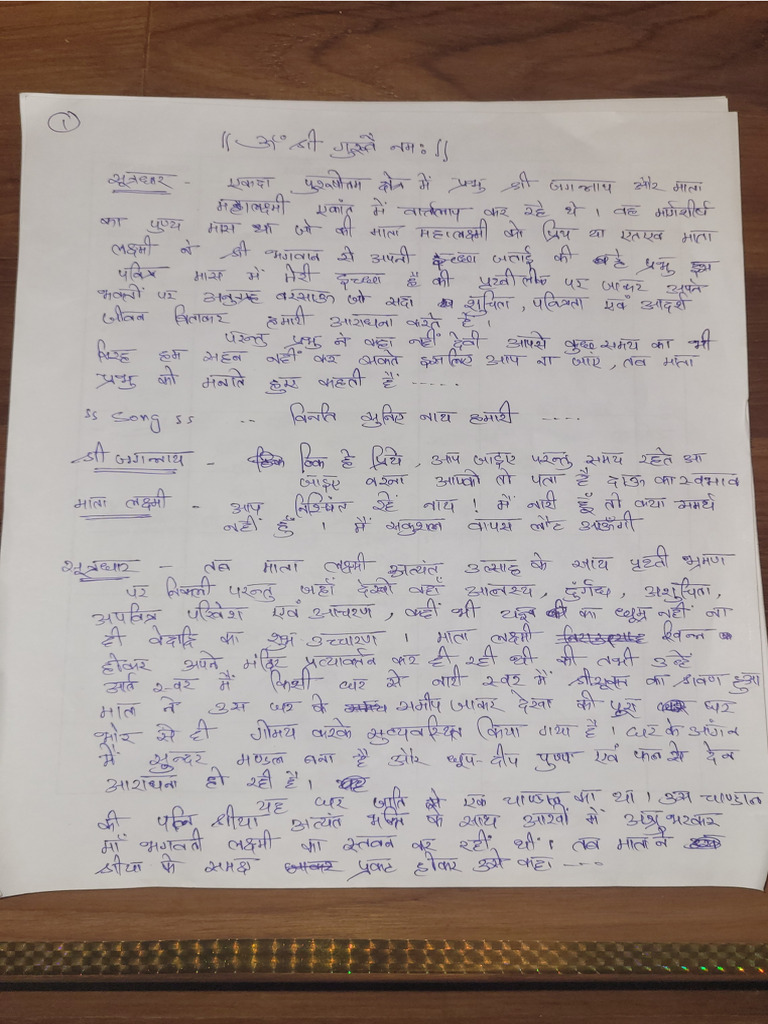 1
|| ॐ श्री गुरुवै नमः ||
सूत्रधार - एकदा पुरुषोत्तम क्षेत्र में प्रभु श्री जगन्नाथ और माता
महालक्ष्मी एकांत में वार्तालाप कर रहे थे । वह मार्गशीर्ष
का पुण्य मास था जो की माता महालक्ष्मी को प्रिय था एतएव माता
लक्ष्मी ने श्री भगवान से अपनी इच्छा जताई की हे प्रभु इस
पवित्र मास में मेरी इच्छा है की पृथ्वी लोक पर जाकर अपने
भक्तों पर अनुग्रह बरसाऊ जो सदा शुचिता, पवित्रता एवं आदर्श
जीवन बिताकर हमारी आराधना करते हैं ।
परन्तु प्रभु ने कहा नहीं देवी आपसे कुछ समय का भी
विरह हम सहन नहीं कर सकते इसलिए आप ना जाएं, तब माता
प्रभु को मनाते हुए कहती हैं .....
"Song" .. विनति सुनिए नाथ हमारी ....
श्री जगन्नाथ - ठिक है प्रिये, आप जाइए परन्तु समय रहते आ
जाइए वरना आपको तो पता है दाऊ का स्वभाव
माता लक्ष्मी - आप निश्चिंत रहें नाथ ! में नारी हूँ तो क्या समर्थ
नहीं हुँ । मैं सकुशल वापस लौट आऊँगी
सूत्रधार - तब माता लक्ष्मी अत्यंत उत्साह के साथ पृथ्वी भ्रमण
पर निकली परन्तु जहाँ देखो वहाँ आलस्य, दुर्गंध, अशुचिता,
अपवित्र परिवेश एवं आचरण, कहीं भी यज्ञ का धूम्र नहीं ना
ही वेदादि का शुभ्र उच्चारण । माता लक्ष्मी खिन्न
होकर अपने मंदिर प्रत्यावर्तन कर ही रही थी की तभी उन्हें
आर्त स्वर में किसी घर से नारी स्वर में श्रीसूक्त का श्रवण हुआ
माता ने उस घर के समीप आकर देखा की पूरा घर
भोर से ही गोमय करके सुव्यवस्थित किया गया है । घर के आंगन
में सुन्दर मण्डल बना है और धूप-दीप पुष्प एवं फल से देव
आराधना हो रही है ।
यह घर जाति से एक चाण्डाल का था । उस चाण्डाल
की पत्नि श्रीया अत्यंत भक्ति के साथ आखों में अश्रु भरकर
माँ भगवती लक्ष्मी का स्तवन कर रहीं थीं । तब माता ने
श्रीया के समक्ष प्रकट होकर उसे कहा ....